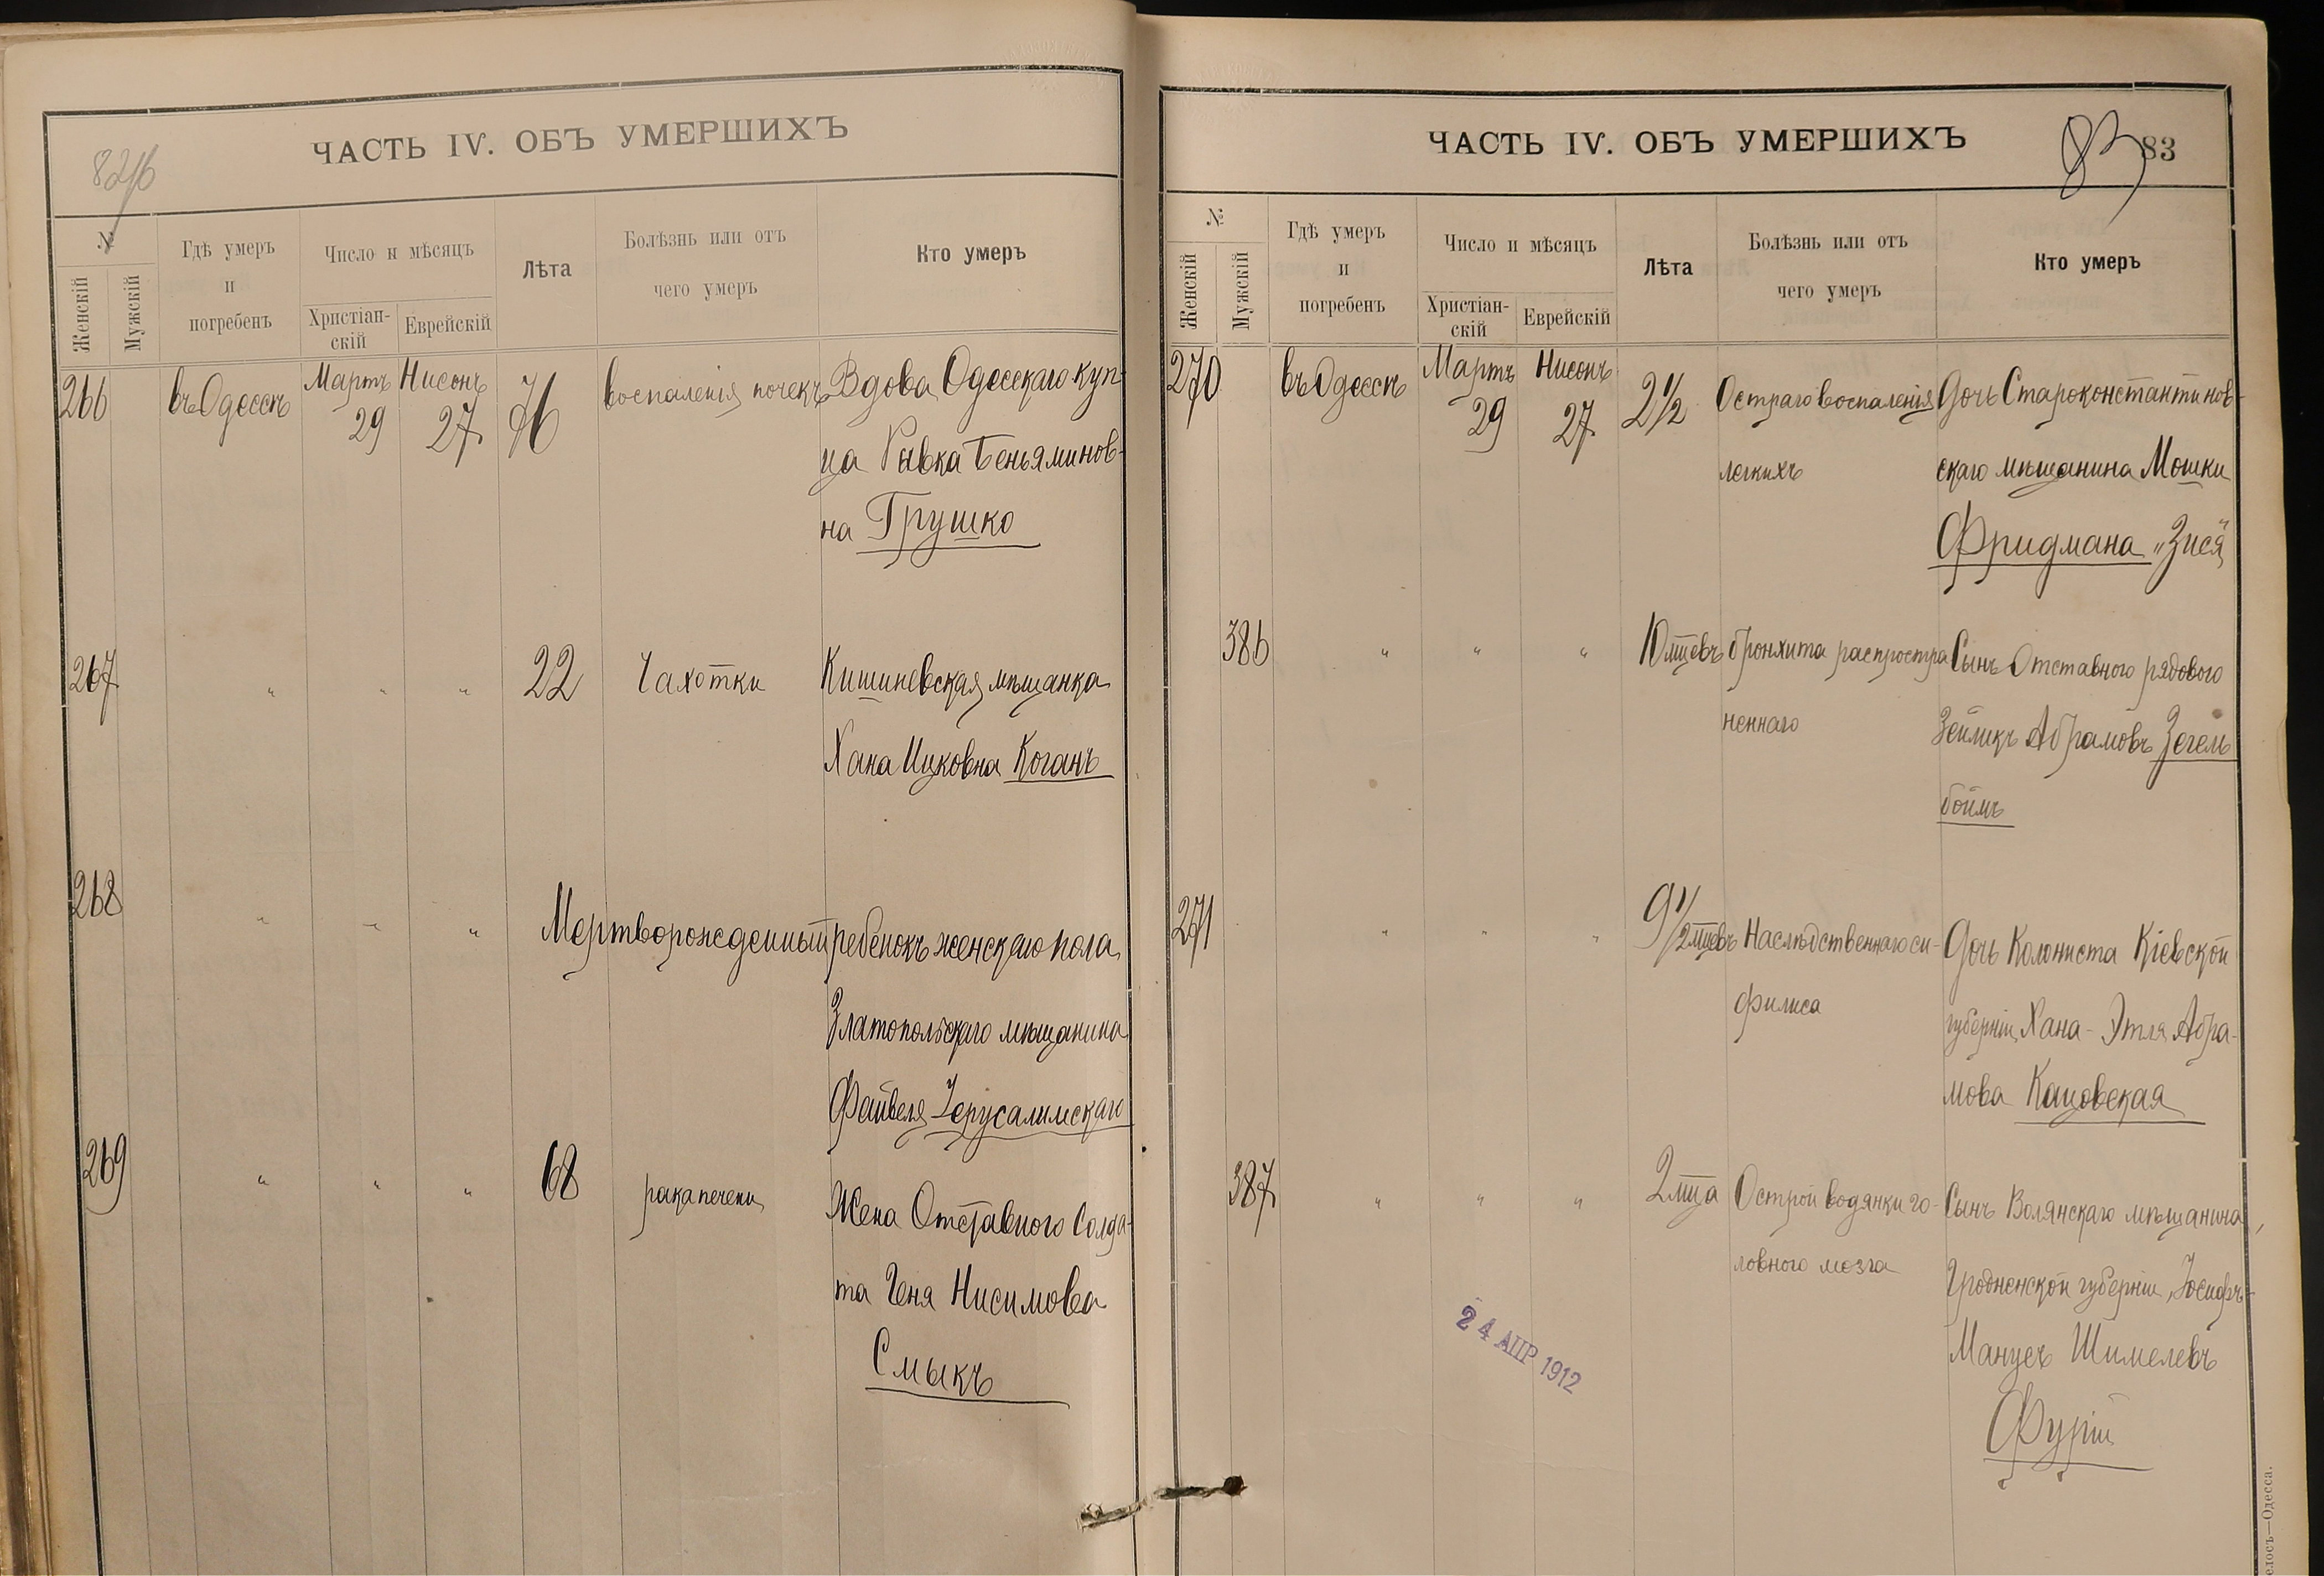 ЧАСТЬ IV. ОБЪ УМЕРШИХЪ
№
Женскій
Мужскій
Гдѣ умеръ
и
погребенъ
Число и мѣсяцъ
Христіан-
скій
Еврейскій
Лѣта
Болѣзнь или отъ
чего умеръ
Кто умеръ
266 въ Одессѣ Мартъ Нисонъ 76 воспаленія почекъ Вдова Одесскаго куп-
29 27 ца Рывка Беньяминов-
на Грушко
267 " " " 22 Чахотки Кишиневская мѣщанка
Хана Ицковна Коганъ
268 " " " Мертворожденный ребенокъ женскаго пола
Златопольскаго мѣщанина
Файвеля Іерусалимскаго
269 " " " 68 рака печени Жена Отставного Солда-
та Геня Нисимова
Смыкъ
ЧАСТЬ IV. ОБЪ УМЕРШИХЪ
83 83
№
Женскій
Мужскій
Гдѣ умеръ
и
погребенъ
Число и мѣсяцъ
Христіан-
скій
Еврейскій
Лѣта
Болѣзнь или отъ
чего умеръ
Кто умеръ
270 въ Одессѣ Мартъ Нисонъ 2 1/2 Остраго воспаленія Дочь Староконстантинов-
29 27 легкихъ скаго мѣщанина Мошки
Фридмана „Зися"
386 " " " 10 мцевъ бронхита распростра Сынъ Отставного рядового
неннаго Зейликъ Абрамовъ Зегель
боймъ
271 " " " 9 1/2 мцевъ Наслѣдственнаго си- Дочь Колониста Кіевской
филиса губерніи Хана-Этля Абра-
мова Кацовская
387 " " " 2 мца Острой водянки го- Сынъ Волянскаго мѣщанина,
ловного мозга Гродненской губерніи, Іосифъ-
Манусъ Шимелевъ
Фурій
24 АПР 1912